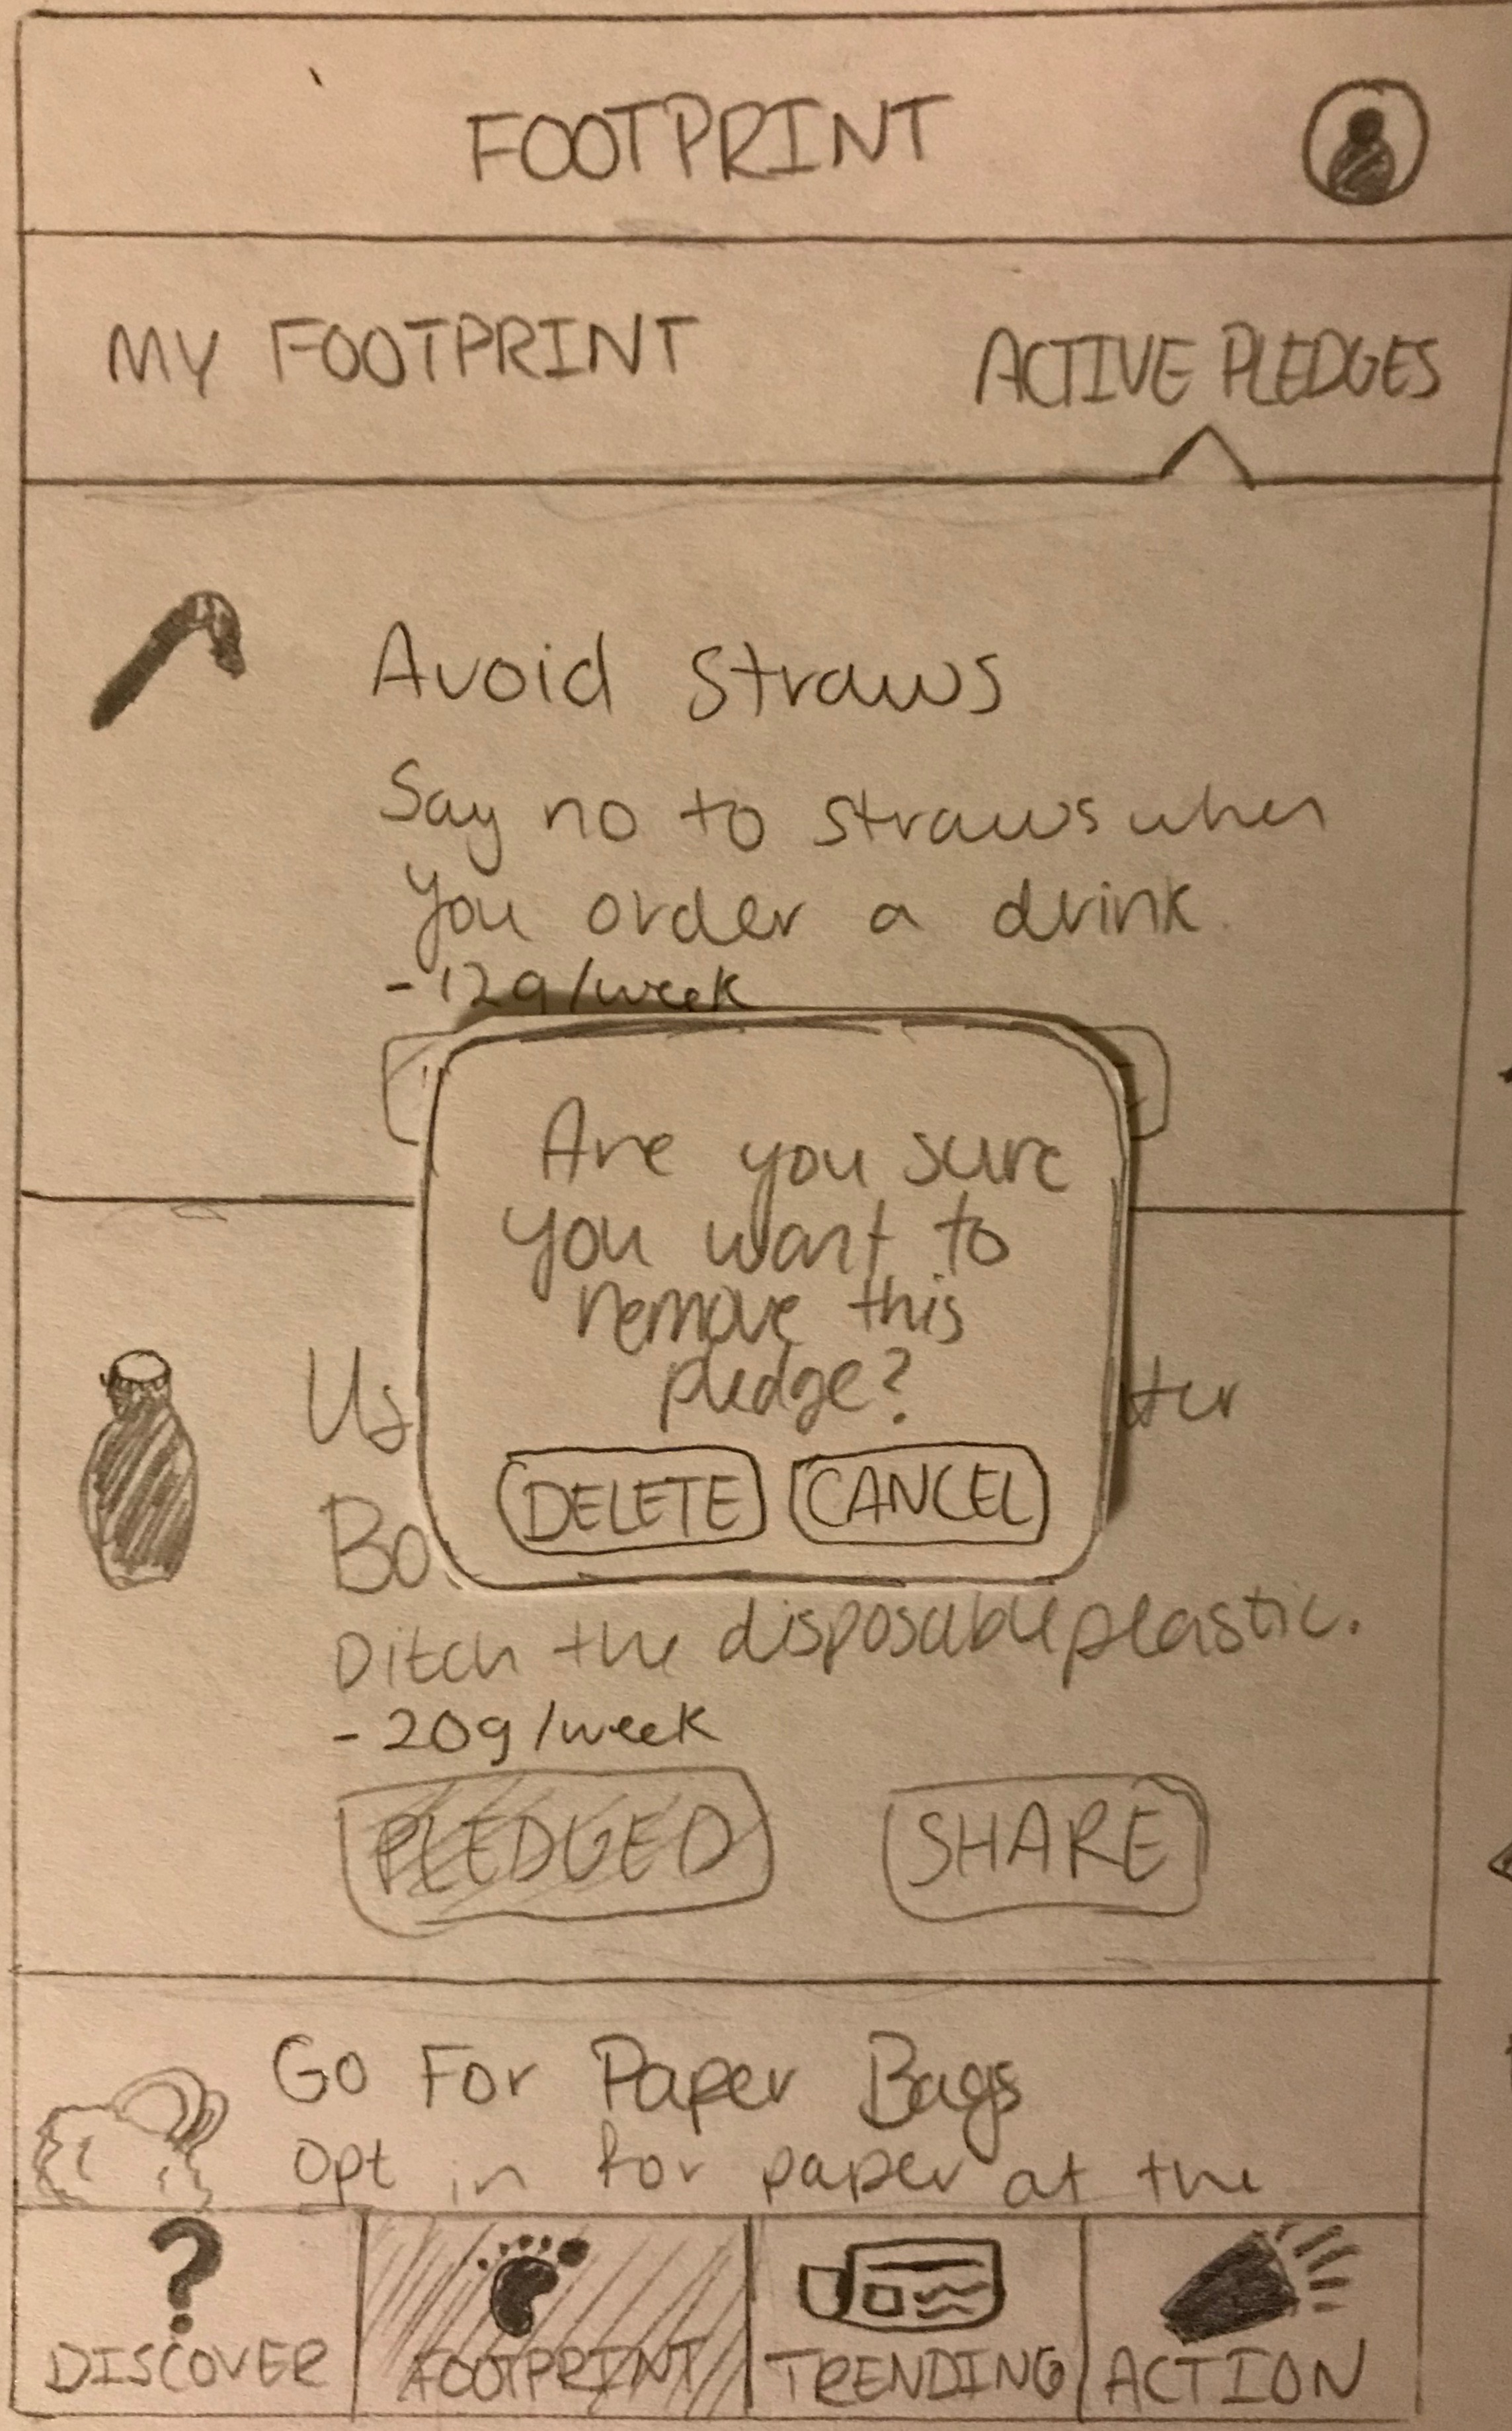 FOOTPRINT
MY FOOTPRINT
ACTIVE PLEDGES
Avoid Straws
Say no to straws when
you order a drink.
- 12g/week
Are you sure
you want to
remove this
pledge?
DELETE
CANCEL
Us
ter
Bo
Ditch the disposable plastic.
- 20g/week
PLEDGED
SHARE
Go For Paper Bags
Opt in for paper at the
DISCOVER
FOOTPRINT
TRENDING
ACTION